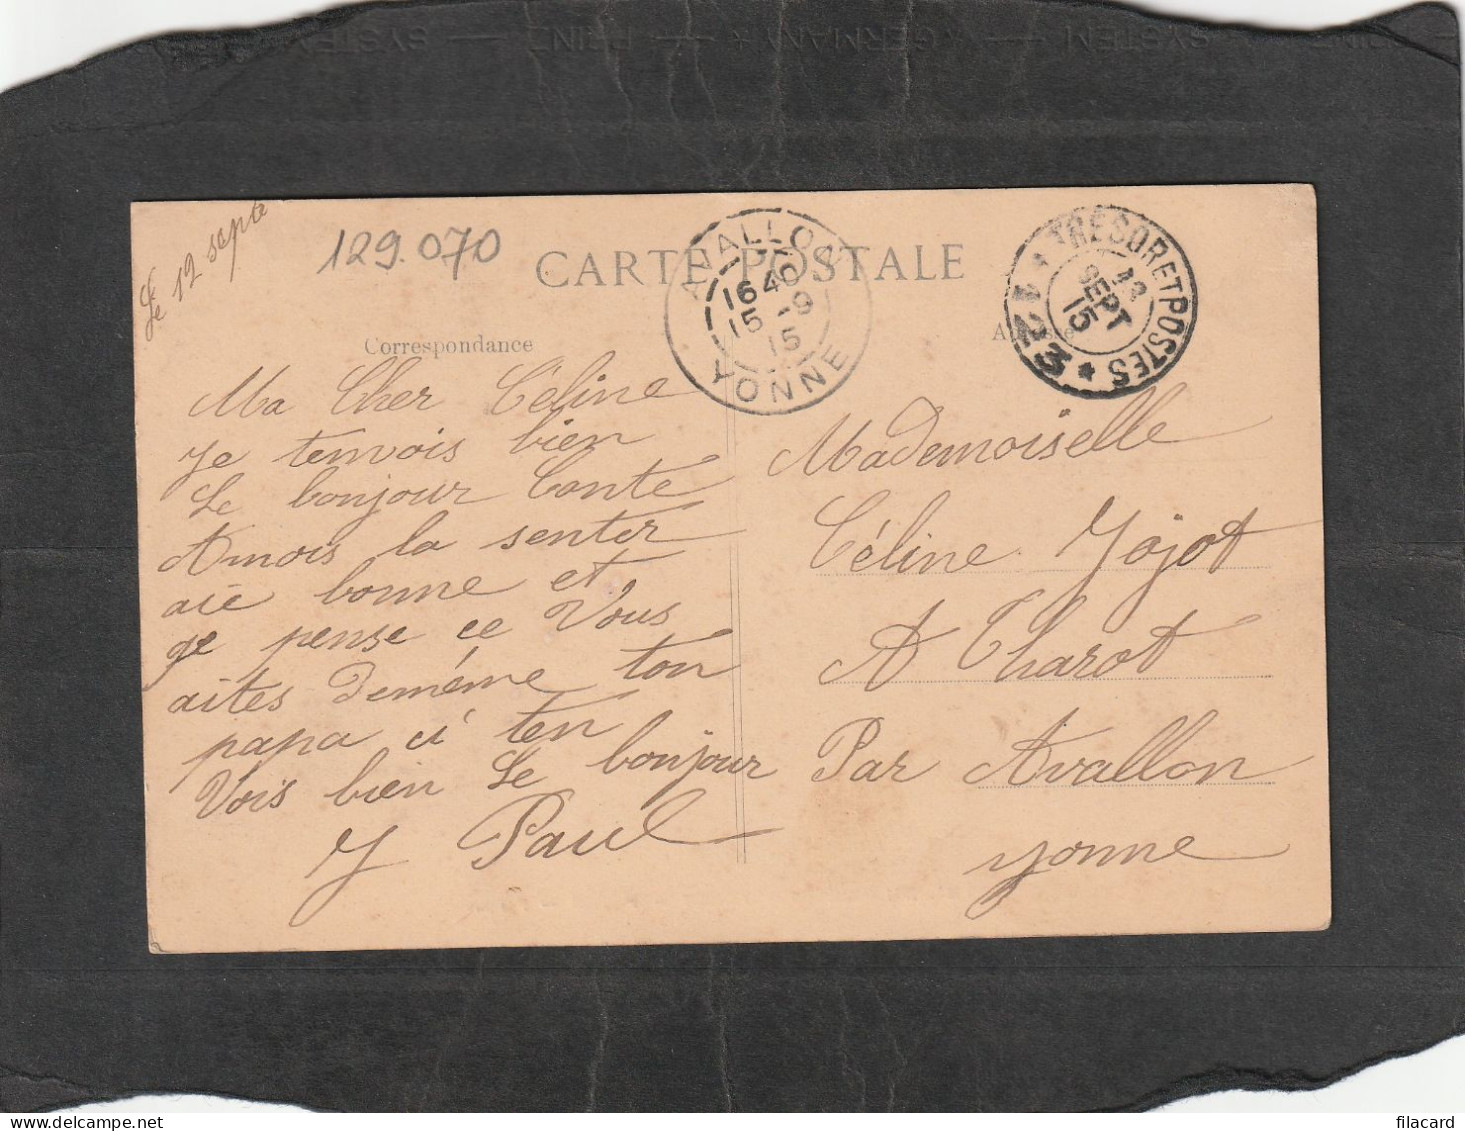 Le 12 septe
129.070
CARTE POSTALE
AVALLON
1640
15 -9
15
YONNE
TRESOR ET POSTES
12
SEPT
15
* 23 *
Correspondance
Ma Cher Céline
Je tenvois bien
Le bonjour Conte
Amois la senter
aie bonne et
je pense ce Vous
aites Deméme ton
papa ci ten
Vois bien Le bonjour
J Paul
Mademoiselle
Céline Jojot
A Tharot
Par Avallon
yonne
filacard.delcampe.net